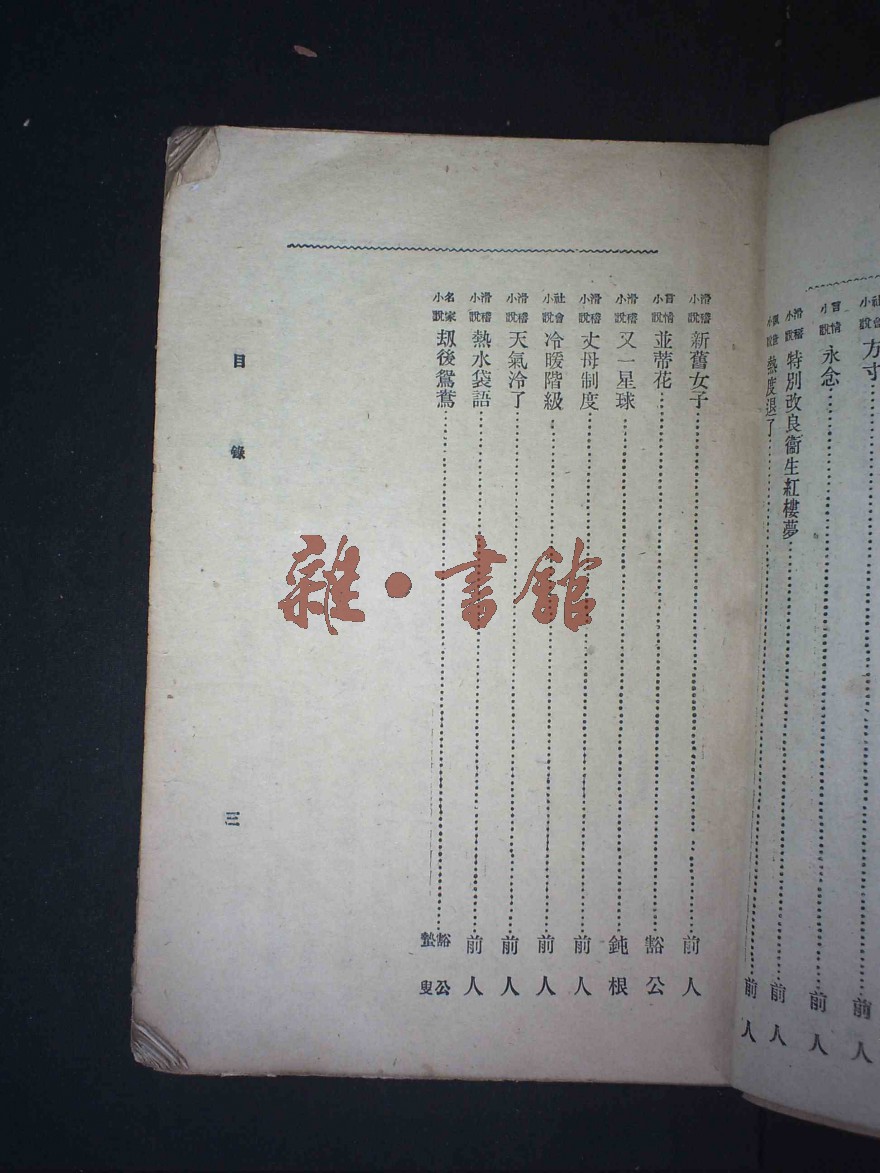 社會小說 方寸 前人
言情小說 永念 前人
滑稽小說 特別改良衞生紅樓夢 前人
小說 熱度退了 前人
滑稽小說 新舊女子 前人
言情小說 並蒂花 豁公
滑稽小說 又一星球 鈍根
滑稽小說 丈母制度 前人
社會小說 冷暖階級 前人
滑稽小說 天氣冷了 前人
滑稽小說 熱水袋語 前人
名家小說 刼後鴛鴦 豁公 蟄叟
目錄
三
雜·書館